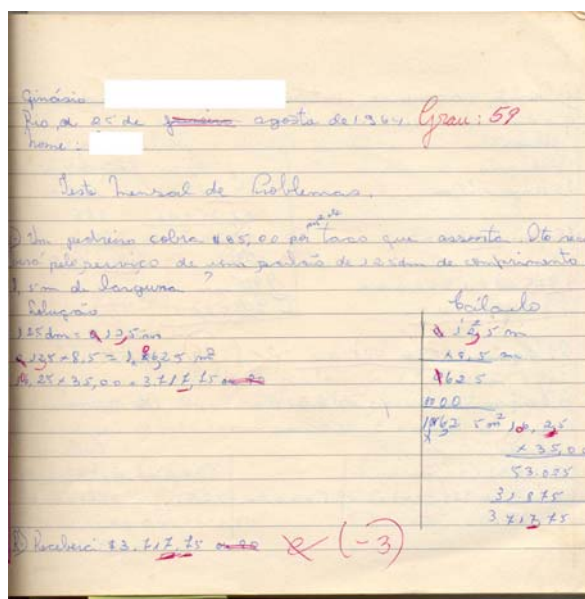 Ginásio
Rio, de 25 de janeiro agosto de 1964. Grau: 59
Nome:
Teste Mensal de Problemas.
Um pedreiro cobra $35,00 por m² de taco que assenta. Qto rece
berá pelo serviço de um salão de 125dm de comprimento
8,5m de largura?
Solução
125dm = 12,5m
12,5 × 8,5 = 1,0625 m²
× 35,00 = 3.717,75
Cálculo
12,5 m
× 8,5 m
625
1000
5 m²
× 35,00
53.025
31875
3.717,75
R) Receberá $3.717,75 (-3)